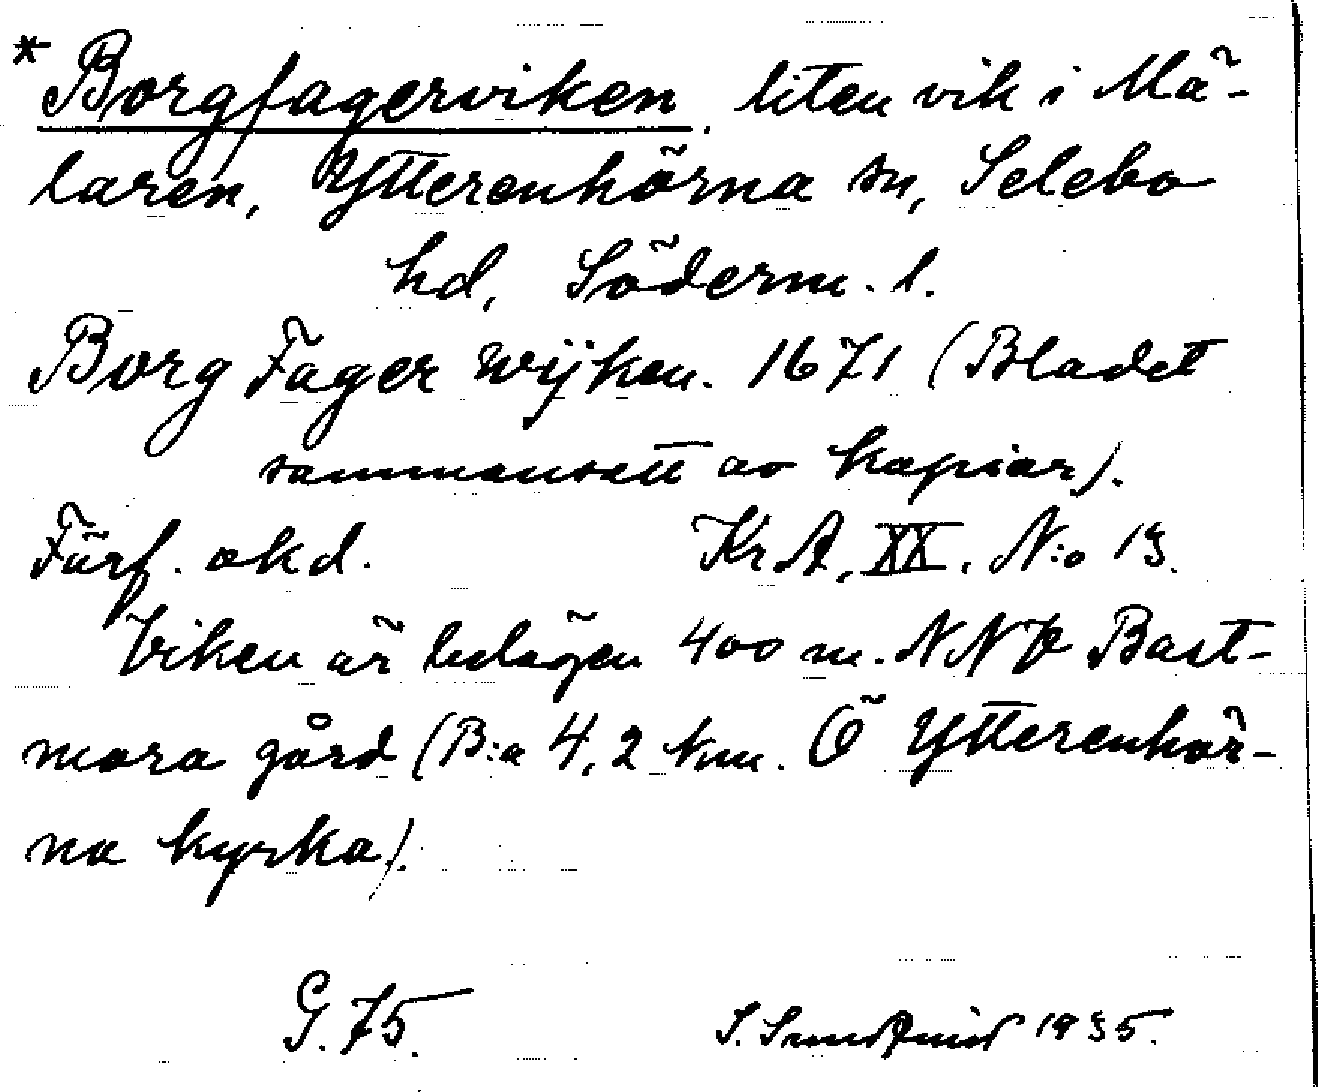 * Borgfagerviken, liten vik i Mä-
laren, Ytterenhörna sn, Selebo
hd, Söderm. l.
Borg Fager Wijken. 1671 (Bladet
sammansatt av kopior).
Förf. okd. Kr.A. XX. N:o 13.
Viken är belägen 400 m. NNV Bast-
mora gård (B:a 4,2 km. Ö Ytterenhör-
na kyrka).
G. 75. S. Sundqvist 1935.